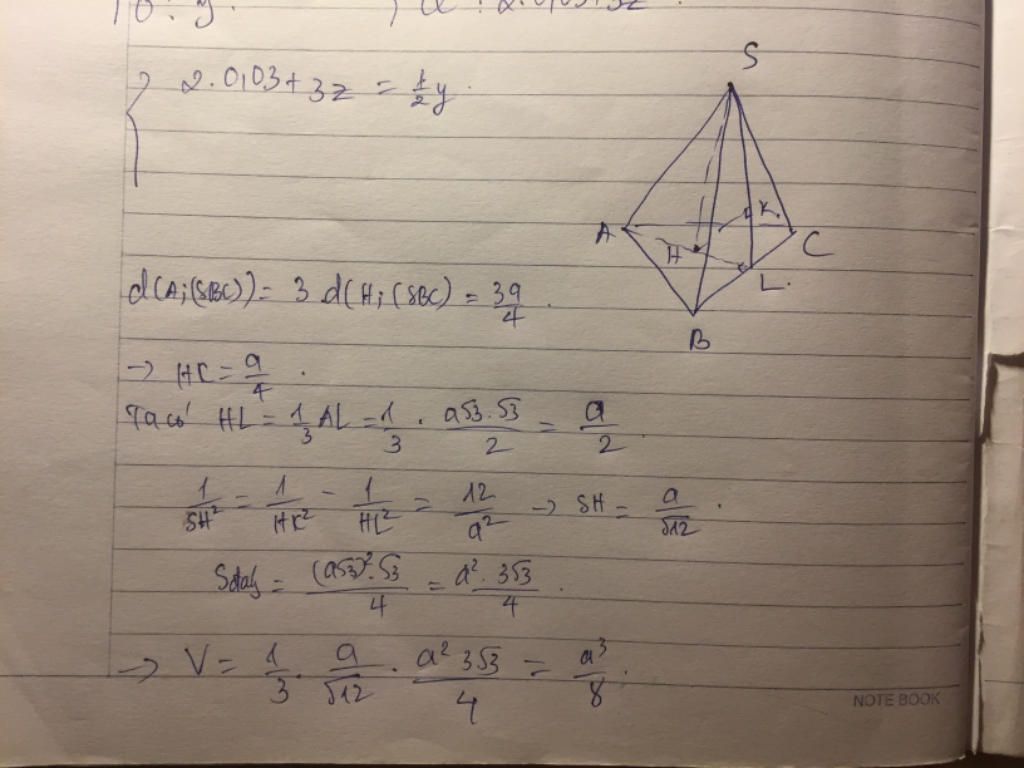 2.0,03 + 3z = 1/2 y.
S
A
H
K.
C
L.
B
d(A;(SBC)) = 3 d(H;(SBC) = 3a/4.
→ HK = a/4.
Ta có HL = 1/3 AL = 1/3 . a√3.√3/2 = a/2.
1/SH² = 1/HK² - 1/HL² = 12/a² → SH = a/√12.
Sđáy = (a√3)².√3/4 = a².3√3/4.
→ V = 1/3 . a/√12 . a² 3√3/4 = a³/8.
NOTE BOOK